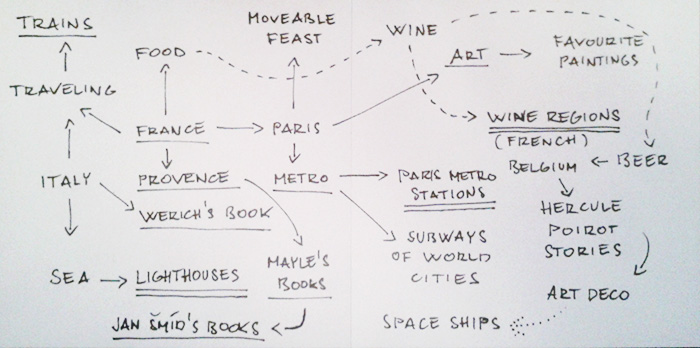 TRAINS
MOVEABLE
FEAST
WINE
FOOD
ART
FAVOURITE
PAINTINGS
TRAVELING
FRANCE
PARIS
WINE REGIONS
(FRENCH)
ITALY
PROVENCE
METRO
PARIS METRO
STATIONS
BELGIUM
BEER
WERICH'S BOOK
HERCULE
POIROT
STORIES
SUBWAYS
OF WORLD
CITIES
SEA
LIGHTHOUSES
MAYLE'S
BOOKS
ART DECO
JAN ŠMÍD'S BOOKS
SPACE SHIPS